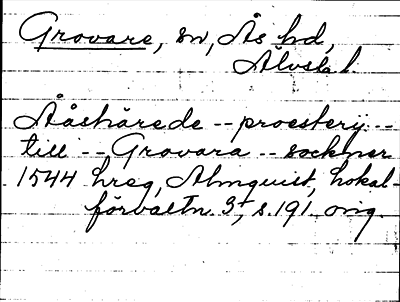 Grovare, sn, Ås hd,
Älvsb. l.
Ååshärede -- proesterij --
till -- Grovara -- sockner
1544 hreg, Almquist, Lokal-
förvaltn. 3, s. 191. orig.